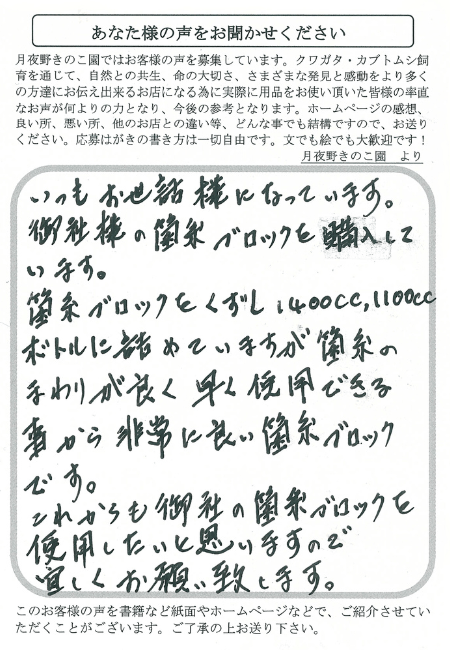 あなた様の声をお聞かせください
月夜野きのこ園ではお客様の声を募集しています。クワガタ・カブトムシ飼
育を通じて、自然との共生、命の大切さ、さまざまな発見と感動をより多く
の方達にお伝え出来るお店になる為に実際に用品をお使い頂いた皆様の率直
なお声が何よりの力となり、今後の参考となります。ホームページの感想、
良い所、悪い所、他のお店との違い等、どんな事でも結構ですので、お送り
ください。応募はがきの書き方は一切自由です。文でも絵でも大歓迎です！
月夜野きのこ園　より
いつもお世話様になっています。
御社様の菌糸ブロックを購入して
います。
菌糸ブロックをくずし1400CC,1100CC
ボトルに詰めていますが菌糸の
まわりが良く早く使用できる
事から非常に良い菌糸ブロック
です。
これからも御社の菌糸ブロックを
使用したいと思いますので
宜しくお願い致します。
このお客様の声を書籍など紙面やホームページなどで、ご紹介させてい
ただくことがございます。ご了承の上お送り下さい。